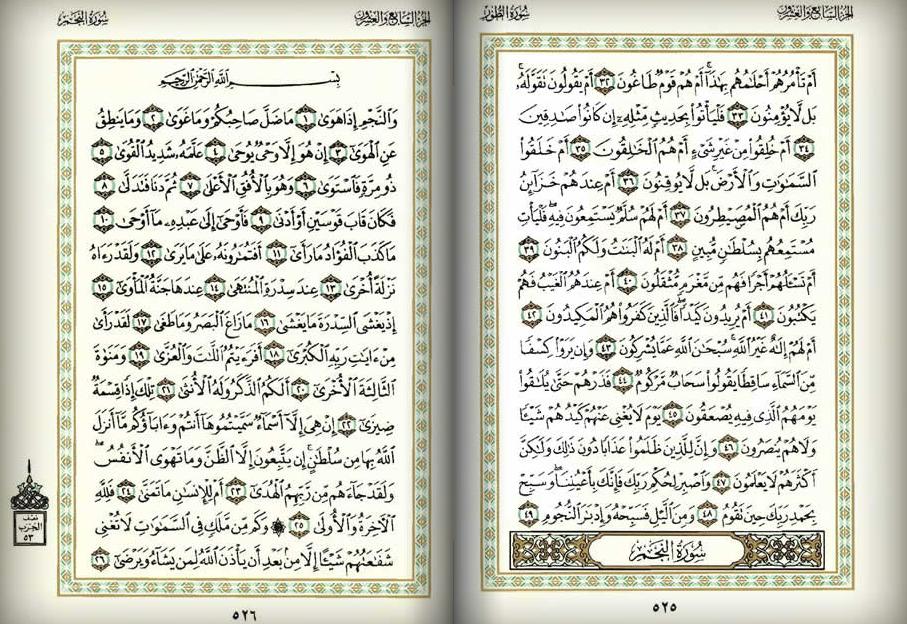 الجزء السابع والعشرون
سورة الطور
أَمْ تَأْمُرُهُمْ أَحْلَٰمُهُم بِهَٰذَآ أَمْ هُمْ قَوْمٌ طَاغُونَ ٣٢ أَمْ يَقُولُونَ تَقَوَّلَهُۥ
بَل لَّا يُؤْمِنُونَ ٣٣ فَلْيَأْتُوا۟ بِحَدِيثٍ مِّثْلِهِۦٓ إِن كَانُوا۟ صَٰدِقِينَ
٣٤ أَمْ خُلِقُوا۟ مِنْ غَيْرِ شَىْءٍ أَمْ هُمُ ٱلْخَٰلِقُونَ ٣٥ أَمْ خَلَقُوا۟
ٱلسَّمَٰوَٰتِ وَٱلْأَرْضَ بَل لَّا يُوقِنُونَ ٣٦ أَمْ عِندَهُمْ خَزَآئِنُ
رَبِّكَ أَمْ هُمُ ٱلْمُصَۣيْطِرُونَ ٣٧ أَمْ لَهُمْ سُلَّمٌ يَسْتَمِعُونَ فِيهِ فَلْيَأْتِ
مُسْتَمِعُهُم بِسُلْطَٰنٍ مُّبِينٍ ٣٨ أَمْ لَهُ ٱلْبَنَٰتُ وَلَكُمُ ٱلْبَنُونَ ٣٩
أَمْ تَسْـَٔلُهُمْ أَجْرًا فَهُم مِّن مَّغْرَمٍ مُّثْقَلُونَ ٤٠ أَمْ عِندَهُمُ ٱلْغَيْبُ فَهُمْ
يَكْتُبُونَ ٤١ أَمْ يُرِيدُونَ كَيْدًا فَٱلَّذِينَ كَفَرُوا۟ هُمُ ٱلْمَكِيدُونَ ٤٢
أَمْ لَهُمْ إِلَٰهٌ غَيْرُ ٱللَّهِ سُبْحَٰنَ ٱللَّهِ عَمَّا يُشْرِكُونَ ٤٣ وَإِن يَرَوْا۟ كِسْفًا
مِّنَ ٱلسَّمَآءِ سَاقِطًا يَقُولُوا۟ سَحَابٌ مَّرْكُومٌ ٤٤ فَذَرْهُمْ حَتَّىٰ يُلَٰقُوا۟
يَوْمَهُمُ ٱلَّذِى فِيهِ يُصْعَقُونَ ٤٥ يَوْمَ لَا يُغْنِى عَنْهُمْ كَيْدُهُمْ شَيْـًٔا
وَلَا هُمْ يُنصَرُونَ ٤٦ وَإِنَّ لِلَّذِينَ ظَلَمُوا۟ عَذَابًا دُونَ ذَٰلِكَ وَلَٰكِنَّ
أَكْثَرَهُمْ لَا يَعْلَمُونَ ٤٧ وَٱصْبِرْ لِحُكْمِ رَبِّكَ فَإِنَّكَ بِأَعْيُنِنَا وَسَبِّحْ
بِحَمْدِ رَبِّكَ حِينَ تَقُومُ ٤٨ وَمِنَ ٱلَّيْلِ فَسَبِّحْهُ وَإِدْبَٰرَ ٱلنُّجُومِ ٤٩
سُورَةُ النَّجْمِ
٥٢٥
الجزء السابع والعشرون
سورة النجم
بِسْمِ ٱللَّهِ ٱلرَّحْمَٰنِ ٱلرَّحِيمِ
وَٱلنَّجْمِ إِذَا هَوَىٰ ١ مَا ضَلَّ صَاحِبُكُمْ وَمَا غَوَىٰ ٢ وَمَا يَنطِقُ
عَنِ ٱلْهَوَىٰٓ ٣ إِنْ هُوَ إِلَّا وَحْىٌ يُوحَىٰ ٤ عَلَّمَهُۥ شَدِيدُ ٱلْقُوَىٰ ٥
ذُو مِرَّةٍ فَٱسْتَوَىٰ ٦ وَهُوَ بِٱلْأُفُقِ ٱلْأَعْلَىٰ ٧ ثُمَّ دَنَا فَتَدَلَّىٰ ٨
فَكَانَ قَابَ قَوْسَيْنِ أَوْ أَدْنَىٰ ٩ فَأَوْحَىٰٓ إِلَىٰ عَبْدِهِۦ مَآ أَوْحَىٰ ١٠
مَا كَذَبَ ٱلْفُؤَادُ مَا رَأَىٰٓ ١١ أَفَتُمَٰرُونَهُۥ عَلَىٰ مَا يَرَىٰ ١٢ وَلَقَدْ رَءَاهُ
نَزْلَةً أُخْرَىٰ ١٣ عِندَ سِدْرَةِ ٱلْمُنتَهَىٰ ١٤ عِندَهَا جَنَّةُ ٱلْمَأْوَىٰٓ ١٥
إِذْ يَغْشَى ٱلسِّدْرَةَ مَا يَغْشَىٰ ١٦ مَا زَاغَ ٱلْبَصَرُ وَمَا طَغَىٰ ١٧ لَقَدْ رَأَىٰ
مِنْ ءَايَٰتِ رَبِّهِ ٱلْكُبْرَىٰٓ ١٨ أَفَرَءَيْتُمُ ٱللَّٰتَ وَٱلْعُزَّىٰ ١٩ وَمَنَوٰةَ
ٱلثَّالِثَةَ ٱلْأُخْرَىٰٓ ٢٠ أَلَكُمُ ٱلذَّكَرُ وَلَهُ ٱلْأُنثَىٰ ٢١ تِلْكَ إِذًا قِسْمَةٌ
ضِيزَىٰٓ ٢٢ إِنْ هِىَ إِلَّآ أَسْمَآءٌ سَمَّيْتُمُوهَآ أَنتُمْ وَءَابَآؤُكُم مَّآ أَنزَلَ
ٱللَّهُ بِهَا مِن سُلْطَٰنٍ إِن يَتَّبِعُونَ إِلَّا ٱلظَّنَّ وَمَا تَهْوَى ٱلْأَنفُسُ
وَلَقَدْ جَآءَهُم مِّن رَّبِّهِمُ ٱلْهُدَىٰٓ ٢٣ أَمْ لِلْإِنسَٰنِ مَا تَمَنَّىٰ ٢٤ فَلِلَّهِ
ٱلْءَاخِرَةُ وَٱلْأُولَىٰ ٢٥ ۞ وَكَم مِّن مَّلَكٍ فِى ٱلسَّمَٰوَٰتِ لَا تُغْنِى
شَفَٰعَتُهُمْ شَيْـًٔا إِلَّا مِنۢ بَعْدِ أَن يَأْذَنَ ٱللَّهُ لِمَن يَشَآءُ وَيَرْضَىٰٓ ٢٦
نصف
الحزب
٥٣
٥٢٦